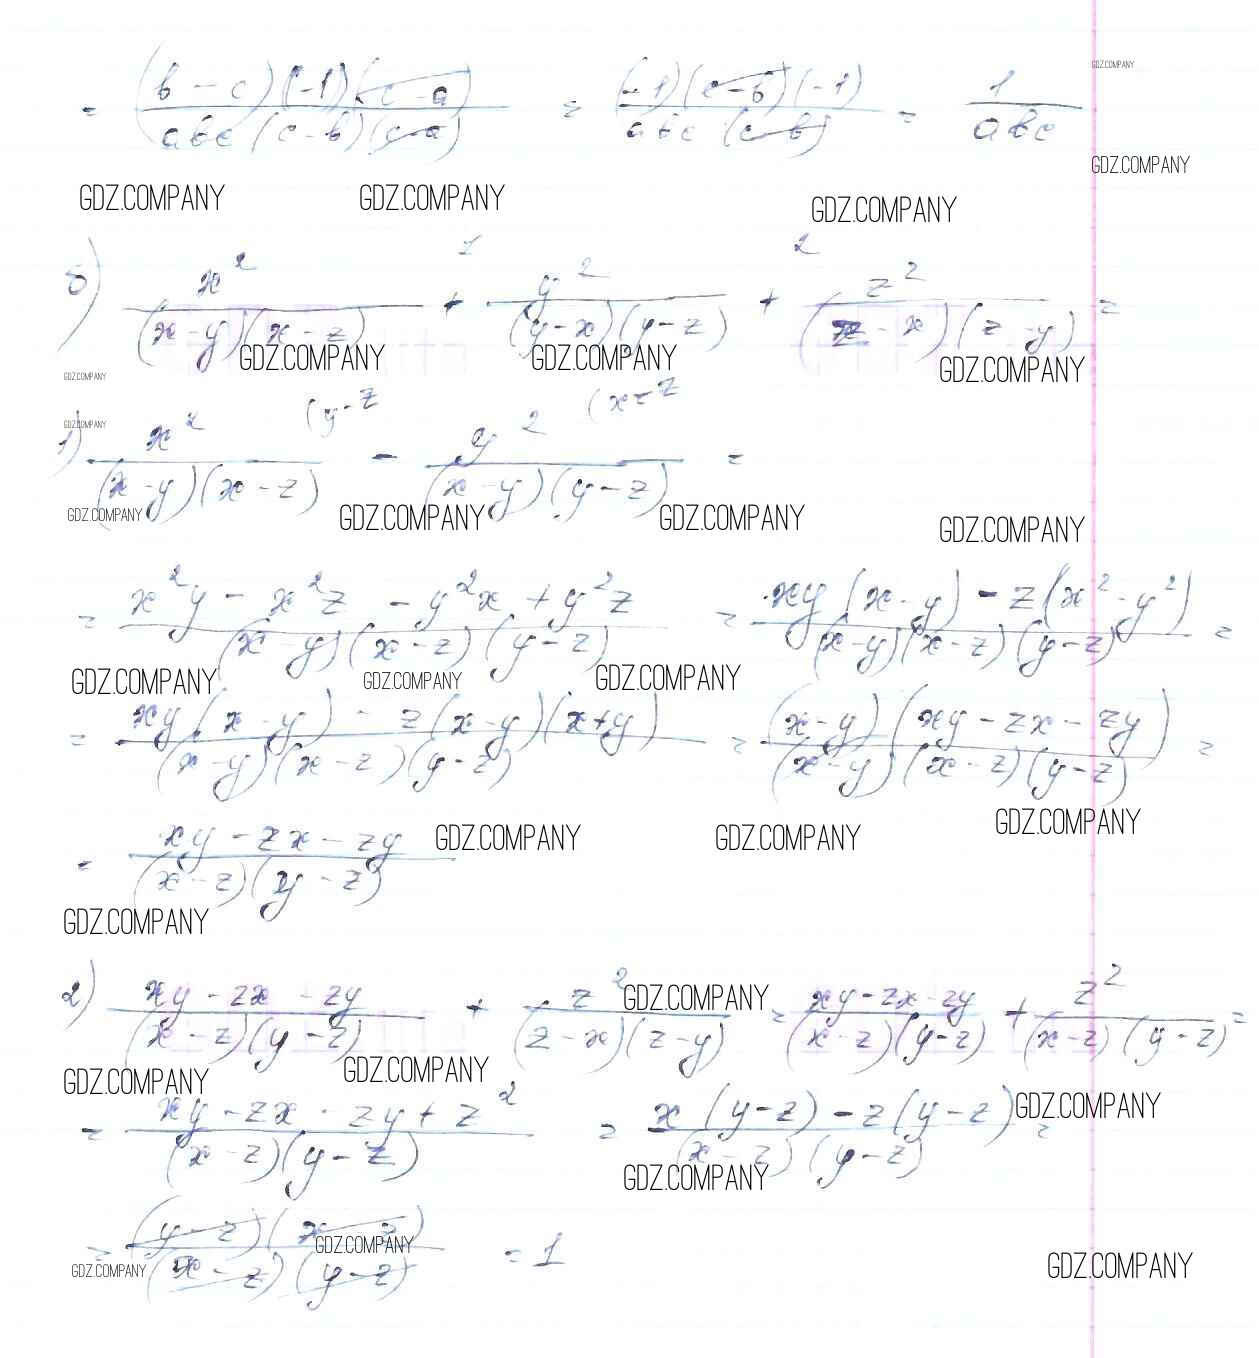 = (b - c)(-1)(c - a) / abc(c - b)(c - a) = (-1)(c - b)(-1) / abc(c - b) = 1 / abc
GDZ.COMPANY
GDZ.COMPANY
GDZ.COMPANY GDZ.COMPANY GDZ.COMPANY
1 2
б) x² / (x - y)(x - z) + y² / (y - x)(y - z) + z² / (z - x)(z - y) =
GDZ.COMPANY GDZ.COMPANY GDZ.COMPANY
GDZ.COMPANY
(y - z (x - z
GDZ.COMPANY
1) x² / (x - y)(x - z) - y² / (x - y)(y - z) =
GDZ.COMPANY GDZ.COMPANY GDZ.COMPANY GDZ.COMPANY
= x²y - x²z - y²x + y²z / (x - y)(x - z)(y - z) = xy(x - y) - z(x² - y²) / (x - y)(x - z)(y - z) =
GDZ.COMPANY GDZ.COMPANY GDZ.COMPANY
= xy(x - y) - z(x - y)(x + y) / (x - y)(x - z)(y - z) = (x - y)(xy - zx - zy) / (x - y)(x - z)(y - z) =
GDZ.COMPANY GDZ.COMPANY GDZ.COMPANY
= xy - zx - zy / (x - z)(y - z)
GDZ.COMPANY
2) xy - zx - zy / (x - z)(y - z) + z² / (z - x)(z - y) = xy - zx - zy / (x - z)(y - z) + z² / (x - z)(y - z) =
GDZ.COMPANY
GDZ.COMPANY GDZ.COMPANY
= xy - zx - zy + z² / (x - z)(y - z) = x(y - z) - z(y - z) / (x - z)(y - z) =
GDZ.COMPANY
GDZ.COMPANY
= (y - z)(x - z) / (x - z)(y - z) = 1
GDZ.COMPANY GDZ.COMPANY GDZ.COMPANY